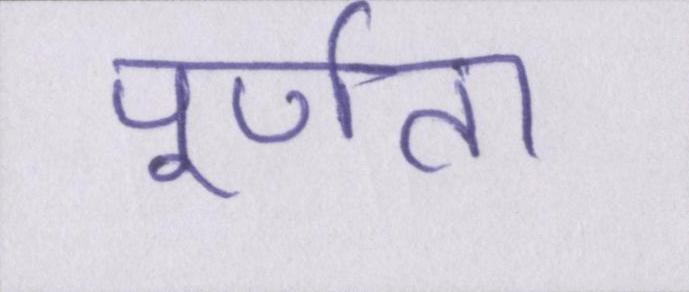 पूर्णता